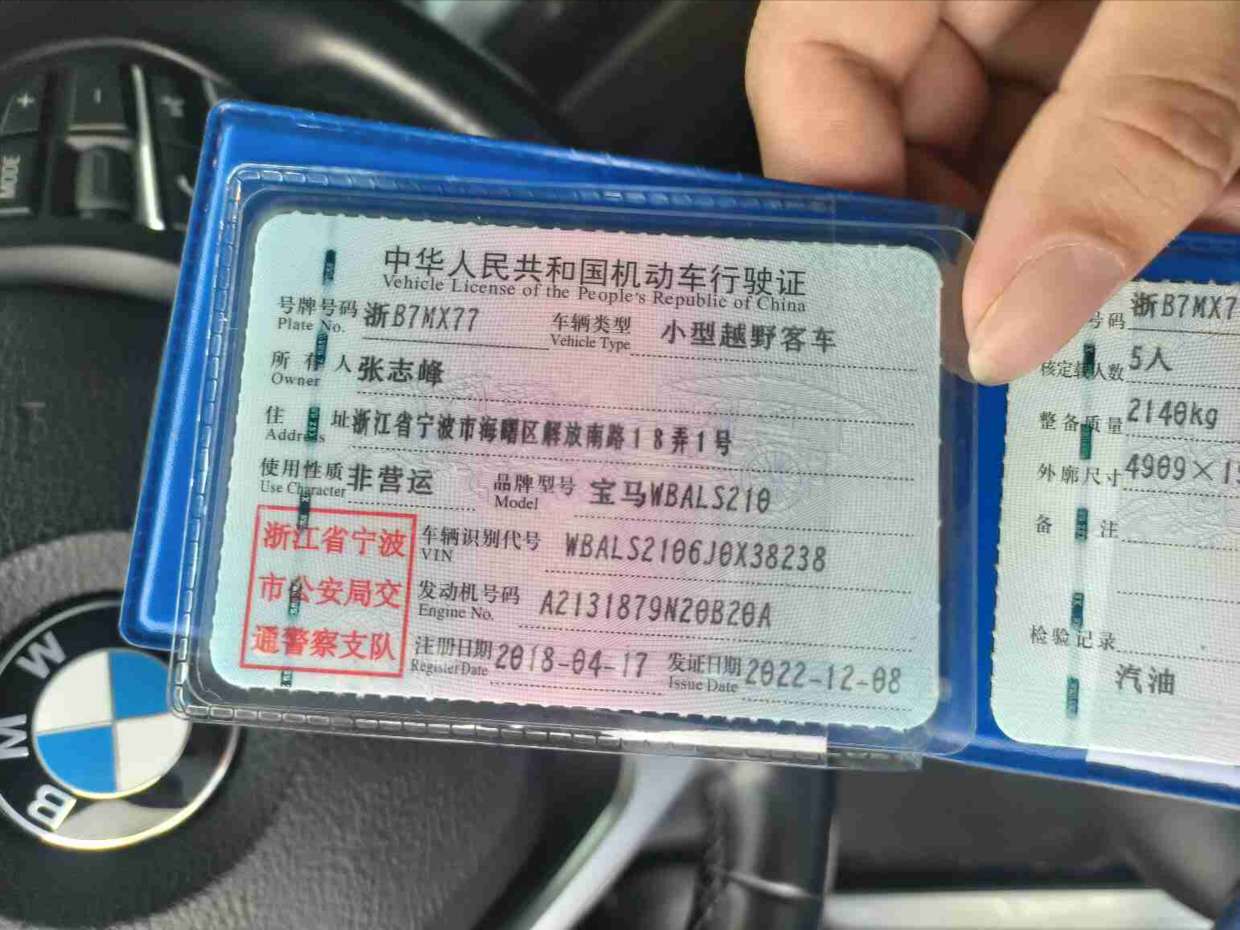 MODE
BMW
中华人民共和国机动车行驶证
Vehicle License of the People's Republic of China
号牌号码 浙B7MX77 车辆类型 小型越野客车
Plate No. Vehicle Type
所有人 张志峰
Owner
住址 浙江省宁波市海曙区解放南路18弄1号
Address
使用性质 非营运 品牌型号 宝马WBALS210
Use Character Model
浙江省宁波
市公安局交
通警察支队
车辆识别代号 WBALS2106J0X38238
VIN
发动机号码 A2131879N20B20A
Engine No.
注册日期 2018-04-17 发证日期 2022-12-08
Register Date Issue Date
号码 浙B7MX7
核定载人数 5人
整备质量 2140kg
外廓尺寸 4909×1
备注
检验记录
汽油